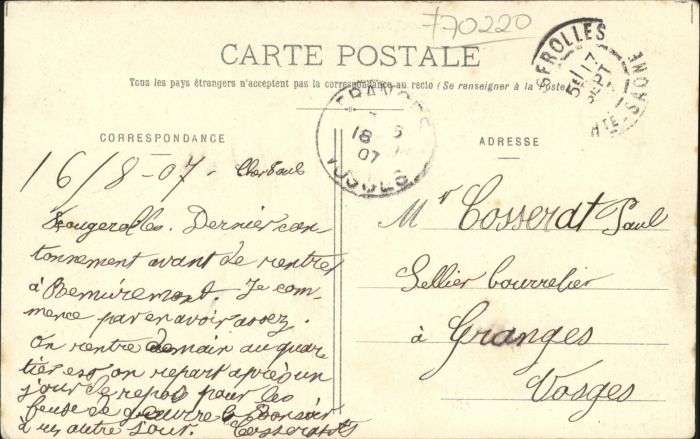 770220
CARTE POSTALE
Tous les pays étrangers n'acceptent pas la correspondance au recto (Se renseigner à la Poste)
FROLLES
17
SEPT
HTE SAONE
GRANGES
18
07
VOSGES
CORRESPONDANCE
16/8-07- Cher Paul
Fougerolles. Dernier can-
tonnement avant de rentrer
à Remiremont. Je com-
mence par en avoir assez.
On rentre demain au quar
tier et on repart après un
jour de repos pour les
de Bonsoir
à un autre jour. Cosserat
ADRESSE
Mr Cosserat Paul
Sellier bourrelier
à Granges
Vosges